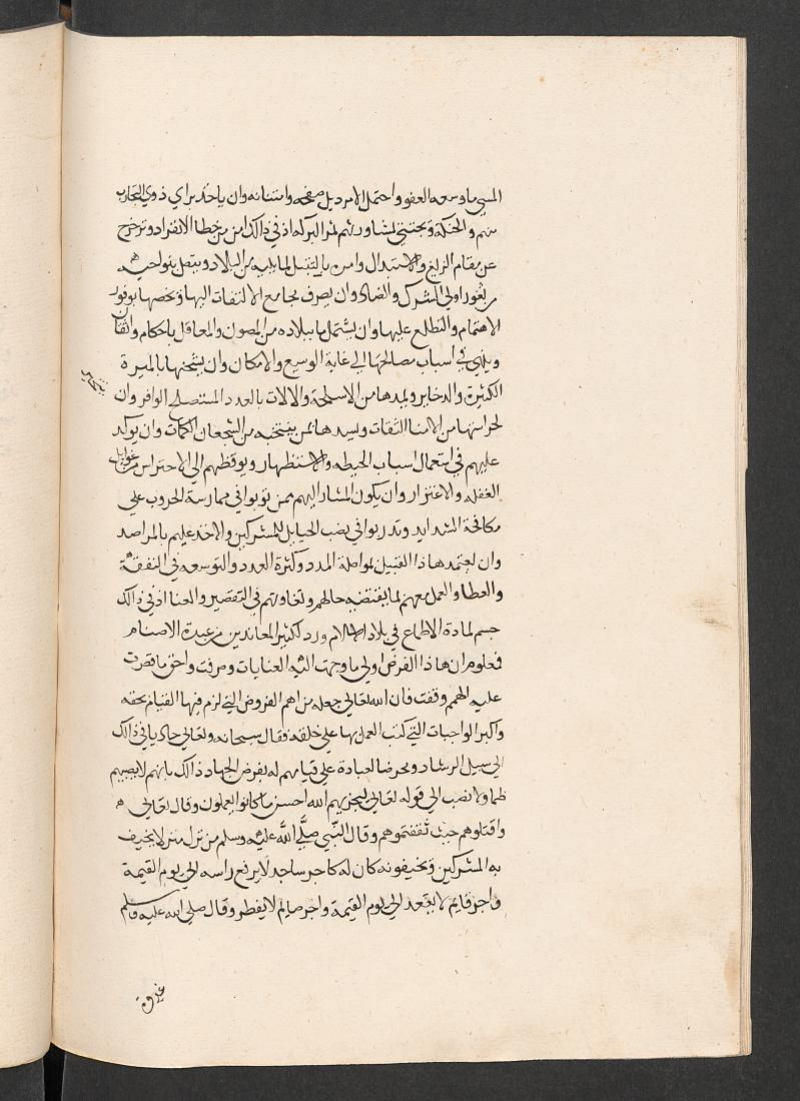 المسي ما وسعه العفو واحتمل الامر ذيل صفحه وامتنانه وان ياخذ براي ذوي التجارب
منهم والحنكه ويجتني لمشاورتهم ثمر البركه اذ في ذالك امن من خطا الانفراد وتزحزح
عن مقام الزيغ والاستبدال وامن بالتبتل لما يليه من البلاد ويتصل بنواحيه
من ثغور اولي الشرك والعناد وان يصرف مجامع الالتفات اليها ويخصها بوفور
الاهتمام والتطلع عليها وان يشتمل ما ببلاده من الحصون والمعاقل باحكام واتقان
وينهي في اسباب مصالحها الي غاية الوسع والامكان وان يشحنها بالميرة
الكثيرة والذخاير ويمدها من الاسلحة والالات بالعدد المستصلح الوافر وان
لحراستها من الامنا الثقات ويسدها بمن ينتخبه من الشجعان الكمات وان يوكد
عليهم في استعمال اسباب الحيطه والاستظهار ويوقظهم الي الاحتراس من غوايل
الغفله والاغترار وان يكون المشار اليهم ممن ربوا في ممارسة الحروب علي
مكافحة الشدايد وتدربوا في نصب الحبايل للمشركين والاخذ عليهم بالمراصد
وان يعتمد هاذا القبيل بمواصلة المدد وكثرة العدد والتوسعه في النفقة
والعطا والعمل معهم بما يقتضيه حالهم وتفاوتهم في التقصير والعنا اذ في ذالك
حسم لمادة الاطماع في بلاد الاسلام ورد لكثير المعاندين من عبدة الاصنام
فمعلوم ان هاذا الفرض اولي ما وجهت اليه العنايات وصرفت واحق ما قصرت
عليه الهمم ووقفت فان الله تعالي جعله من اهم الفروض التي لزم فيها القيام بحقه
واكبر الواجبات التي كتب العمل بها علي خلقه فقال سبحانه وتعالي هاديا في ذالك
الي سبيل الرشاد ومحرضا لعبادة علي قيامهم له بفرض الجهاد ذالك بانهم لا يصيبهم
ظما ولا نصب الي قوله تعالي ليجزيهم الله احسن ما كانوا يعملون وقال تعالي
واقتلوهم حيث ثقفتموهم وقال النبي صلي الله عليه وسلم من نزل منزلا يخيف
به المشركين ويخيفونه كان له كاجر ساجد لا يرفع راسه الي يوم القيمة
واجر قايم لا يقعد الي يوم القيمة واجر صايم لا يفطر وقال صلي الله عليه وسلم
غزوة